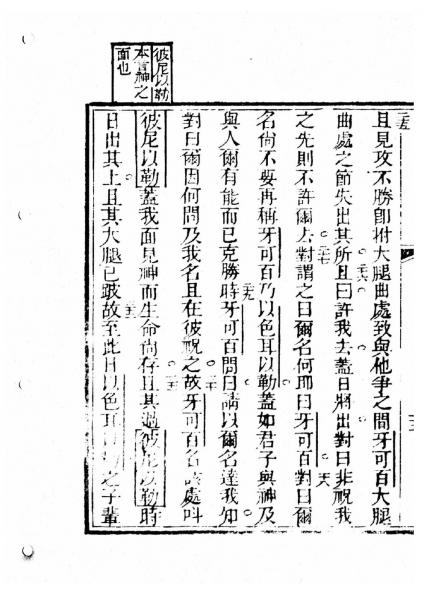 二五
且見攻不勝即拊大腿曲處致與他爭之間牙可百大腿
二六
曲處之節失出其所且曰許我去蓋日將出對曰非祝我
二七
之先則不許爾去對謂之曰爾名何即曰牙可百對曰爾
二八
名尚不要再稱牙可百乃以色耳以勒蓋如君子與神及
二九
與人爾有能而已克勝時牙可百問曰請以爾名達我知
三十
對曰爾因何問及我名且在彼祝之故牙可百名該處呌
彼尼以勒蓋我面見神而生命尚存且其過彼尼以勒時
日出其上且其大腿已跛故至此日以色耳以勒之子輩
彼尼以勒
本言神之
面也